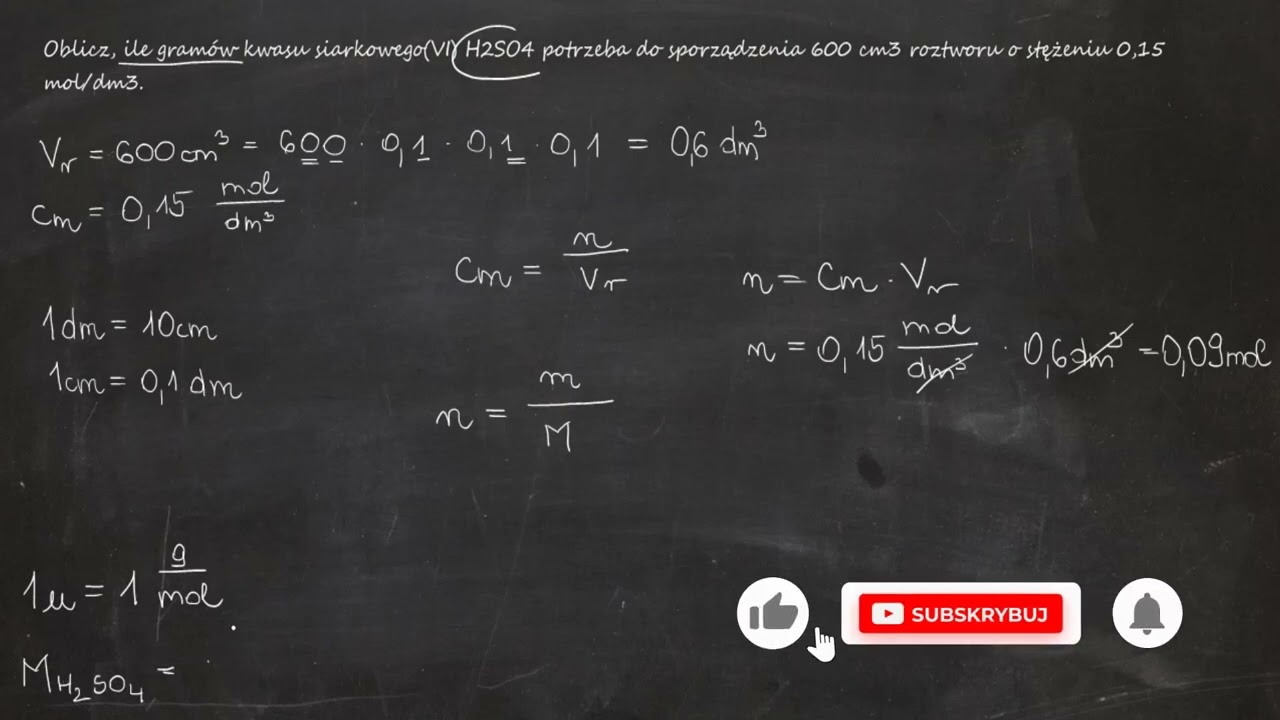 Oblicz, ile gramów kwasu siarkowego(VI) H2SO4 potrzeba do sporządzenia 600 cm3 roztworu o stężeniu 0,15
mol/dm3.
Vr = 600 cm³ = 600 · 0,1 · 0,1 · 0,1 = 0,6 dm³
Cm = 0,15 mol/dm³
Cm = n/Vr
n = Cm · Vr
1dm = 10cm
n = 0,15 mol/dm³ · 0,6dm³ = 0,09mol
1cm = 0,1 dm
n = m/M
1u = 1 g/mol
SUBSKRYBUJ
MH₂SO₄ =